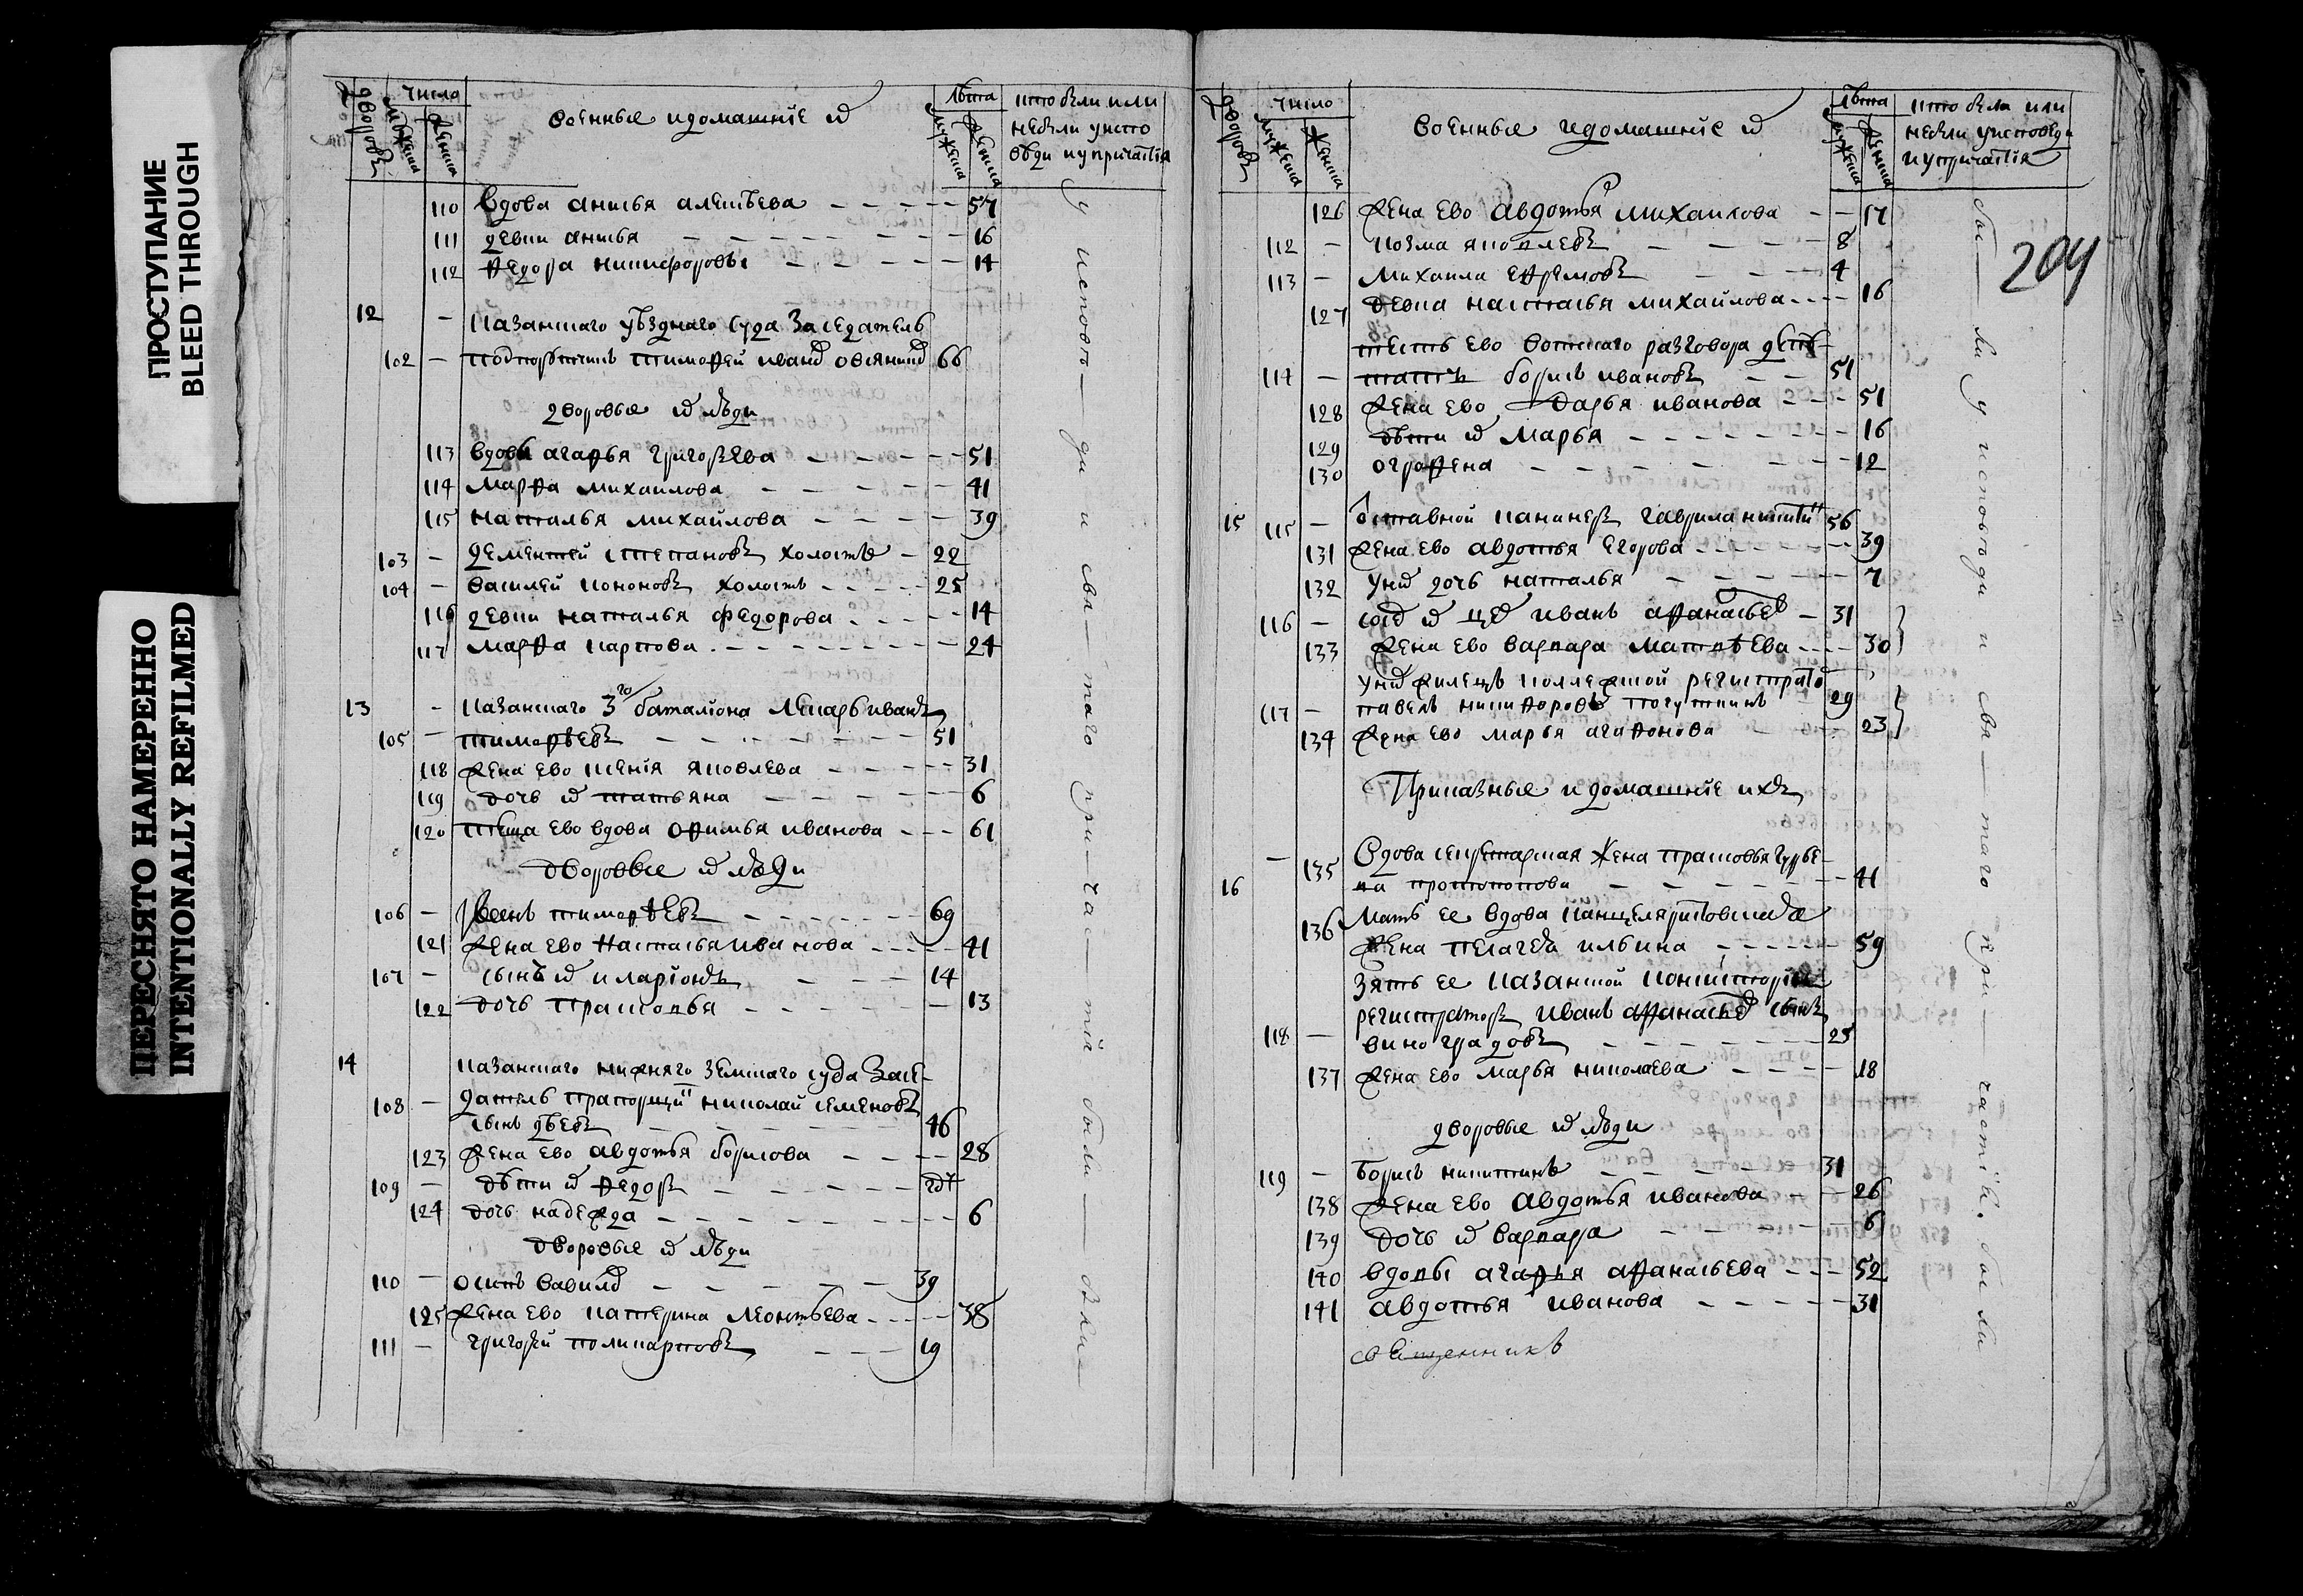 ПРОСТУПАНИЕ
BLEED THROUGH
ПЕРЕСНЯТО НАМЕРЕННО
INTENTIONALLY REFILMED
дворовъ
число
мужеска
женска
военные идомашнїе ихъ
лѣта
мужеска
женска
кто были или
небыли уиспо
вѣди иупричастїя
110 вдова анисья алексѣева 57
111 девки анисья 16
112 федора никифоровы 14
12 казанскаго уѣзднаго суда заседатель
102 подпорутчикъ тимофей иванъ овсяник 66
дворовые ихъ люди
113 вдовы агафья григорьева 51
114 марфа михаилова 41
115 наталья михайлова 39
103 дементей степановъ холостъ 22
104 василей кононовъ холостъ 25
116 девки наталья федорова 14
117 марфа карпова 24
13 казанскаго 3го баталїона лекарь иванъ
105 тимофѣевъ 51
118 жена ево ксенїя яковлева 31
119 дочь их татьяна 6
120 теща ево вдова офимья иванова 61
дворовые их люди
106 иванъ тимофѣевъ 69
121 жена ево настасья иванова 41
107 сынъ их иларїонъ 14
122 дочь прасковья 13
14 казанскаго нижняго земскаго суда засе
108 датель прапорщикъ николай семеновъ
сынъ 46
123 жена ево авдотья борисова 28
109 дѣти их федоръ
124 дочь надежда 6
дворовые их люди
110 осипъ вавил 39
125 жена ево катерина леонтьева 38
111 григорей поликарповъ 19
у исповѣ— ди и свя— таго при— час— тїя были— всѣ
дворовъ
число
мужеска
женска
военные идомашнїе их
лѣта
мужеска
женска
кто были или
небыли уисповѣди
иупричастїя
204
126 жена ево авдотья михаилова 17
112 козма яковлевъ 8
113 михаила ефремовъ 4
127 девка настасья михайлова 16
тесть ево вотскаго разговора
114 борисъ ивановъ 51
128 жена ево дарья иванова 51
129 дѣти их марья 16
130 ографена 12
15 115 отставной канонеръ гаврила никити 56
131 жена ево авдотья егорова 39
132 уних дочь наталья 7
116 иванъ афанасьев 31
133 жена ево варвара матвѣева 30
уних жилецъ коллежской регистрато
117 павелъ никифоровъ 29
134 жена ево марья агафонова 23
Приказные и домашнїе ихъ
135 вдова секретарская жена прасковья гурье
16 ва протопопова 41
136 мать ее вдова канцеляристовская
жена пелагея ильина 59
зять ее казанской консисторїи
регистраторъ иванъ афанасьев сынъ
118 виноградовъ 25
137 жена ево марья николаева 18
дворовые их люди
119 борисъ никитинъ 31
138 жена ево авдотья иванова 26
139 дочь их варвара 6
140 вдовы агафья афанасьева 52
141 авдотья иванова 31
священникъ
бы— ли у исповѣди и свя— таго при— частїя. бы ли